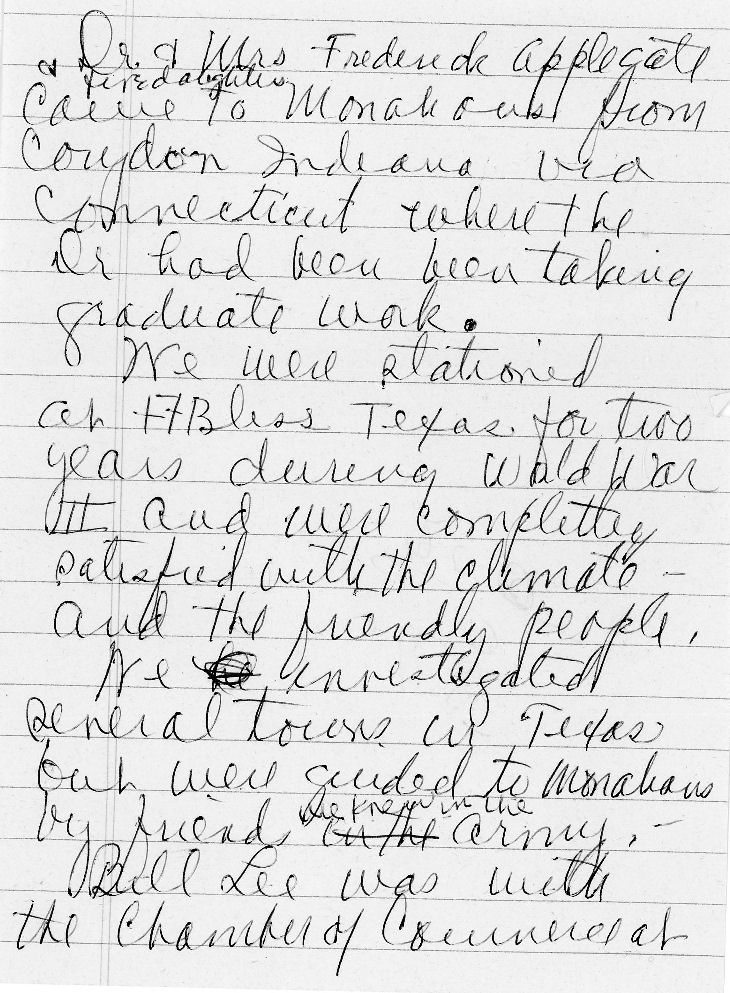 Dr. & Mrs Frederick Applegate
& five daughters
Came to Monahans from
Corydon Indiana via
Connecticut where the
Dr had been been taking
graduate work.
We were stationed
at Ft Bliss Texas for two
years during World War
II and were completley
satisfied with the climate -
and the friendly people.
We investigated
several towns in Texas
but were guided to Monahans
we knew in the
by friends in the army. -
Bill Lee was with
the Chamber of Commerce at